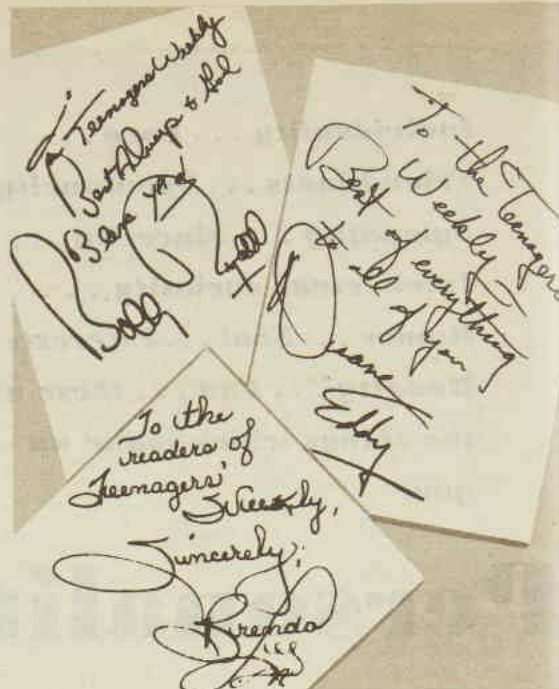 To
Teenagers Weekly
Best Always & God
Bless You
Bobby Rydell
To the Teenagers
Weekly
Best of everything
to all of you,
Duane
Eddy
To the
readers of
Teenagers'
Weekly,
Sincerely,
Brenda
Lee